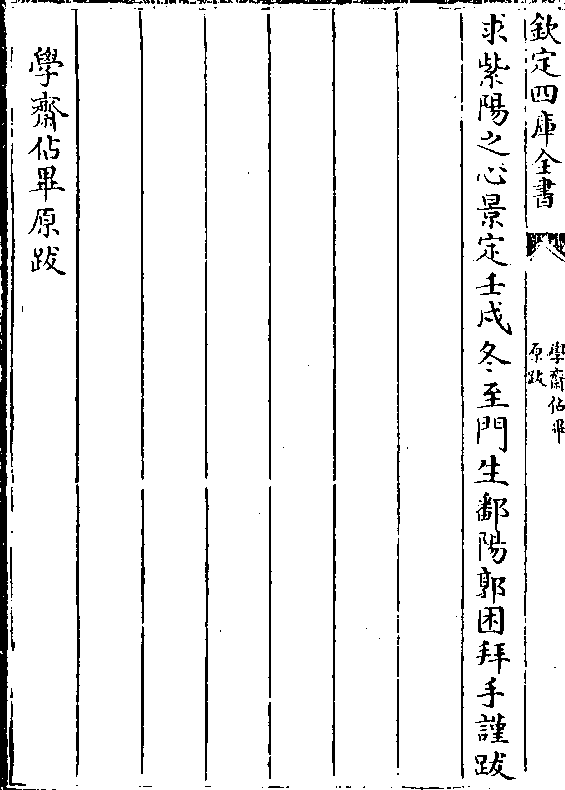 欽定四庫全書
學齋佔畢
原跋
求紫陽之心景定壬戌冬至門生鄱陽郭困拜手謹跋
學齋佔畢原跋